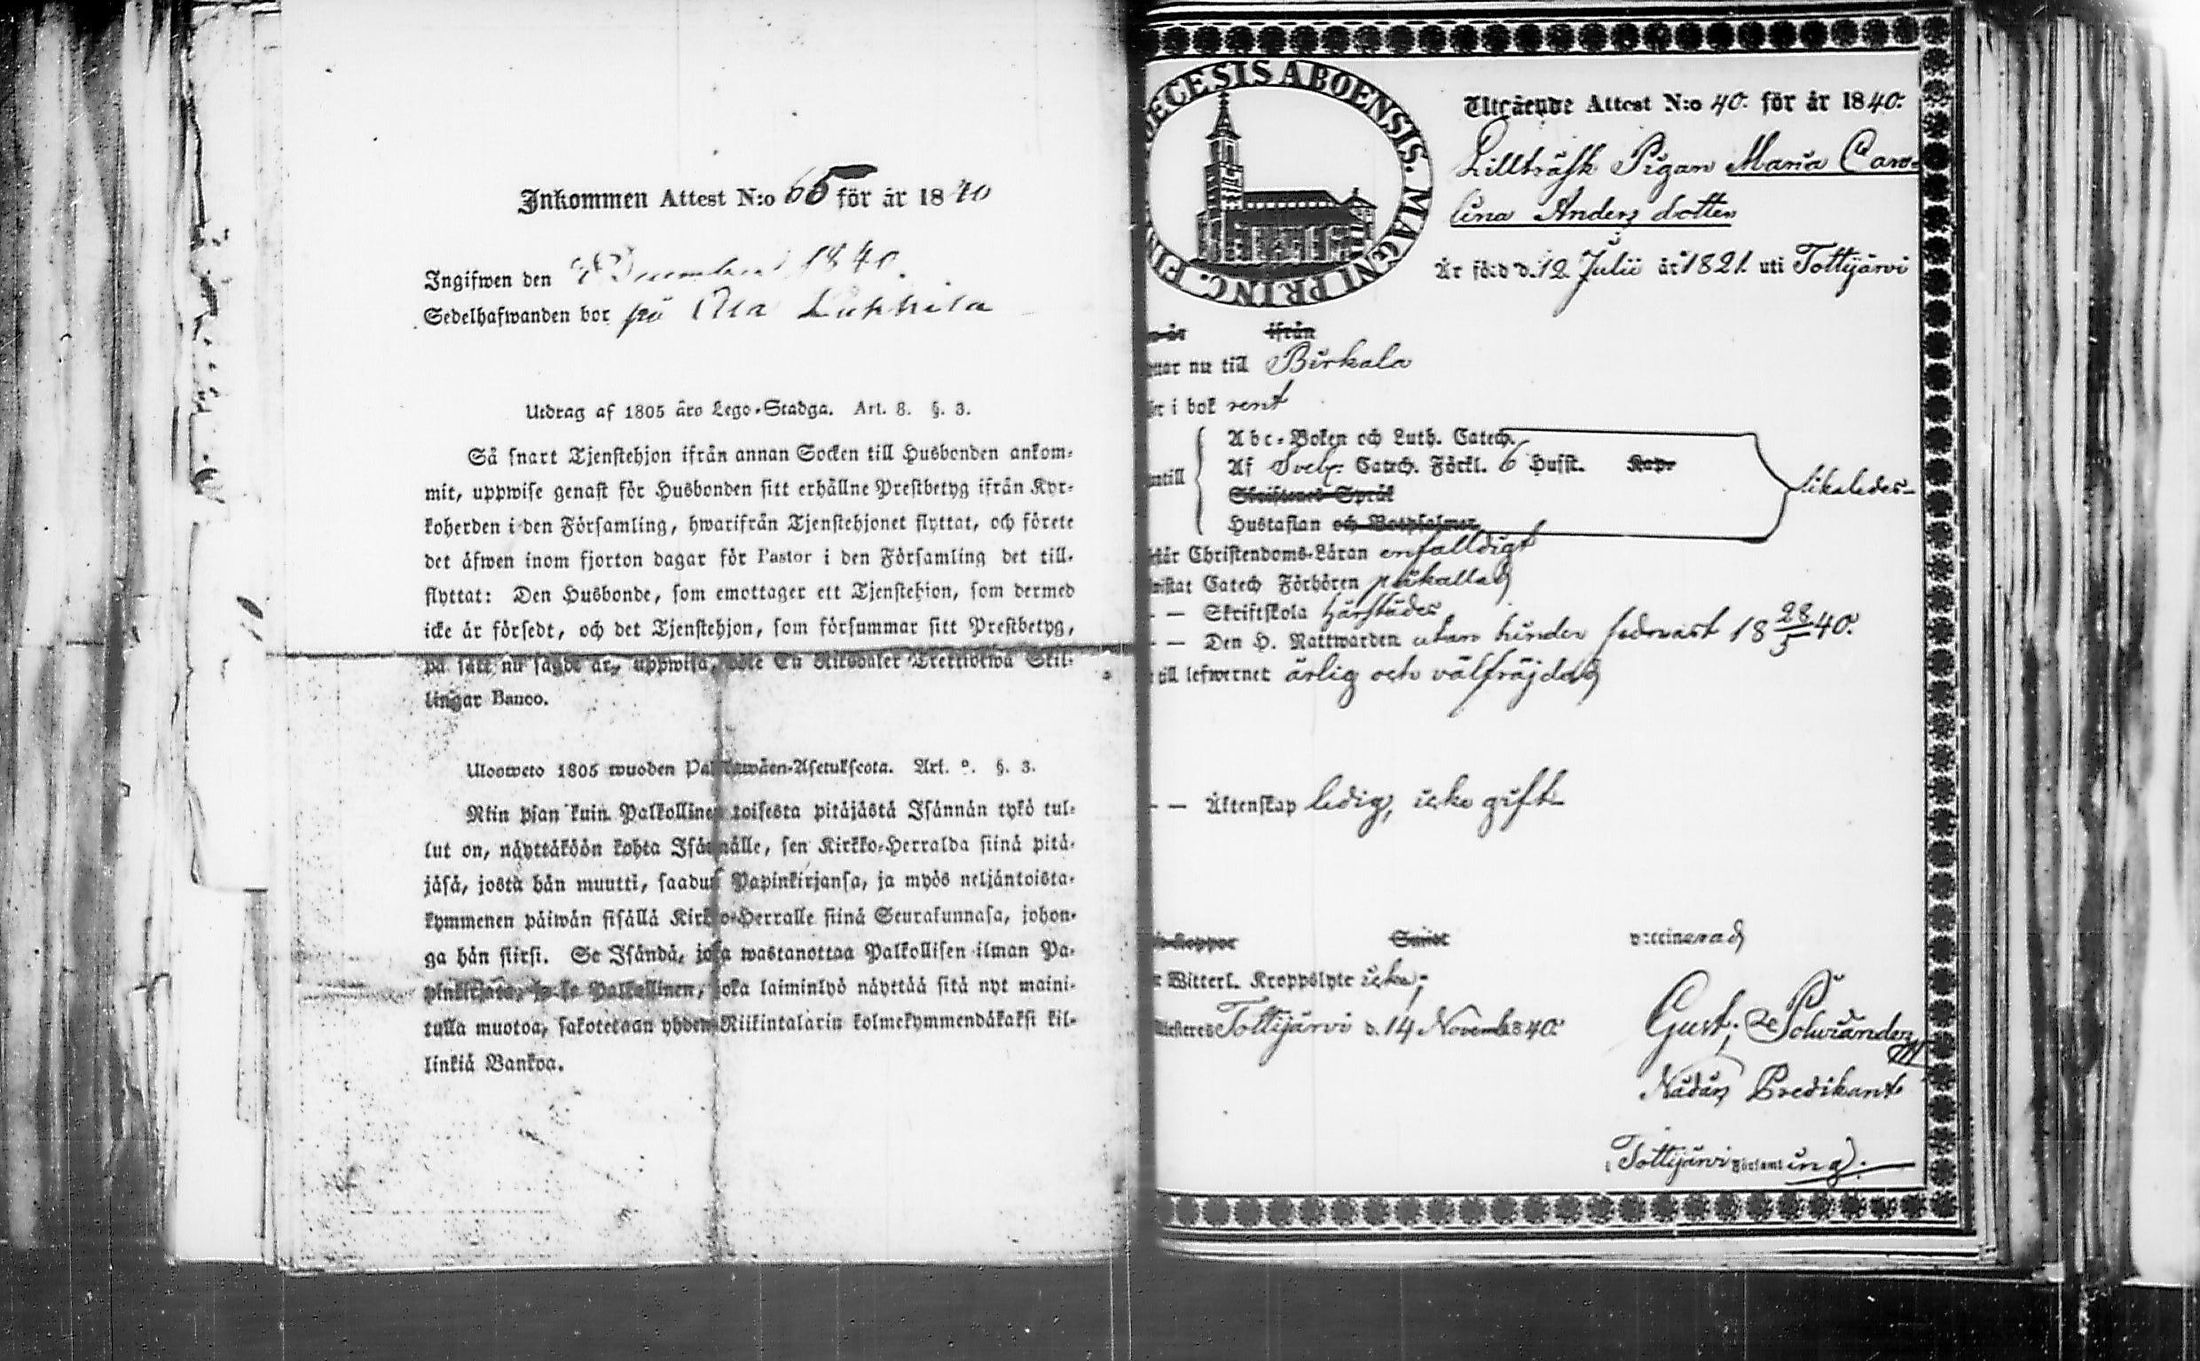 Inkommen Attest N:o 65 för år 1840
Ingifwen den 1840.
Sedelhafwanden bor på
Utdrag af 1805 års Lego-Stadga. Art. 8. §. 3.
Så snart Tjenstehjon ifrån annan Socken till Husbonden ankom-
mit, uppwise genast för Husbonden sitt erhållne Prestbetyg ifrån Kyr-
koherden i den Församling, hwarifrån Tjenstehjonet flyttat, och förete
det äfwen inom fjorton dagar för Pastor i den Församling det till-
flyttat: Den Husbonde, som emottager ett Tjenstehjon, som dermed
icke är försedt, och det Tjenstehjon, som försummar sitt Prestbetyg,
på sätt nu sagdt är, uppwisa, böte En Riksdaler Trettiotwå Skil-
lingar Banco.
Ulosweto 1805 wuoden Palkkawäen-Asetuksesta. Art. §. 3.
Niin pian kuin Palkollinen toisesta pitäjästä Isännän tykö tul-
lut on, näyttäköön kohta Isännälle, sen Kirkko-Herralda siinä pitä-
jäsä, josta hän muutti, saadun Papinkirjansa, ja myös neljäntoista-
kymmenen päiwän sisällä Kirkko-Herralle siinä Seurakunnasa, johon-
ga hän siirsi. Se Isändä, joka wastanottaa Palkollisen ilman Pa-
pinkirjata, ja se Palkollinen, joka laiminlyö näyttää sitä nyt maini-
tulla muotoa, sakotetaan yhden Riikintalarin kolmekymmendäkaksi kil-
linkiä Bankoa.
DIOECESIS ABOENSIS. MAGNI PRINC. FIN
Utgående Attest N:o 40. för år 1840.
Lillträsk Pigan Maria Caro-
lina Anders dotter
Är född d. 12 Julii år 1821. uti Tottijärvi
ifrån
nu till Birkala
i bok rent
Abc-Boken och Luth. Catech.
Af Sveb: Catech. Förkl. 6 Husst. Kap.
likaledes
Skriftenes Språk
Hustaflan och Botpsalmer
Christendoms-Läran enfalldigt
Catech Förhören påkallad
— Skriftskola härstädes
— Den H. Nattwarden utan hinder sednast 18 28/5 40.
till lefwernet ärlig och välfräjdad
— Äktenskap ledig, icke gift
Koppor Smitt vaccinerad
Witterl. Kroppslyte icke;
Tottijärvi d. 14 Novemb. 1840.
Gust:
Nådårs Predikant
i Tottijärvi Församling.